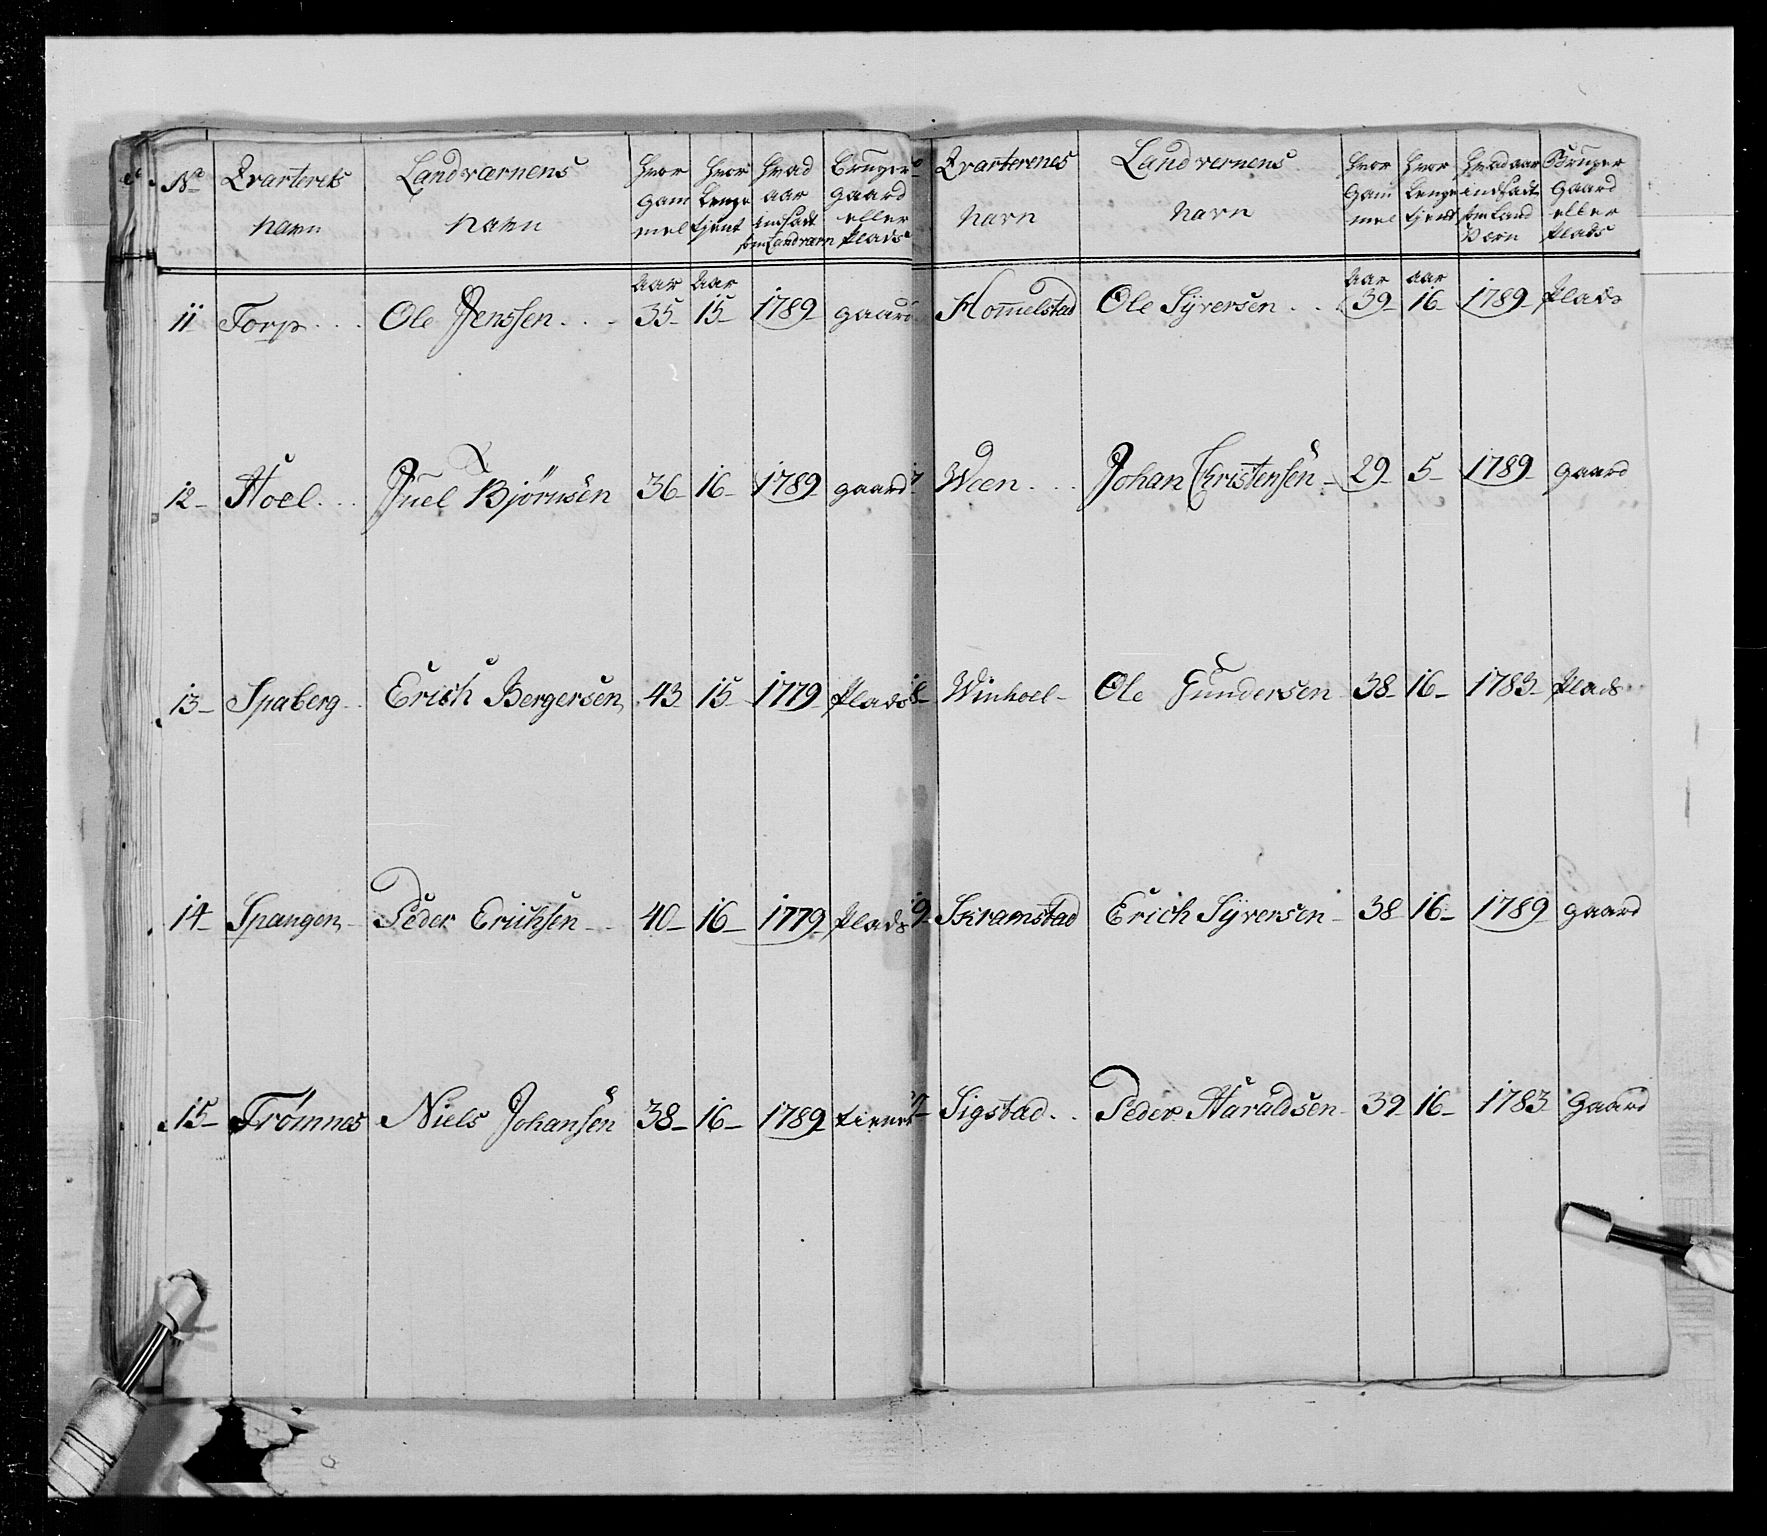 No Qvarterets Navn | Landværnens Navn | Hvor gammel | Hvor Lenge tjent | Hvad aar indsadt som Landværn | Bruger gaard eller Plads
Aar Aar
11 Torp . . . Ole Jenssen . . . 35 15 1789 gaard
12 Hoel . . . Juel Bjørnsen 36 16 1789 gaard
13 Spaberg Erich Bergersen 43 15 1779 Plads
14 Spangen Peder Erichsen 40 16 1779 Plads
15 Trømnes Niels Johansen 38 16 1789 tiener
Qvarterenes Navn | Landvernens Navn | Hvor Gammel | Hvor Lenge tjent | Hvad aar indsadt som Land Værn | Bruger Gaard eller Plads
Aar aar
Hom̅elstad Ole Syversen . . . 39 16 1789 Plads
Ween . . . Johan Christensen 29 5 1789 gaard
Winhoel Ole Gundersen 38 16 1783 Plads
9 Skramstad Erich Syversen 38 16 1789 gaard
Sigstad . . Peder Haraldsen 39 16 1783 Gaard